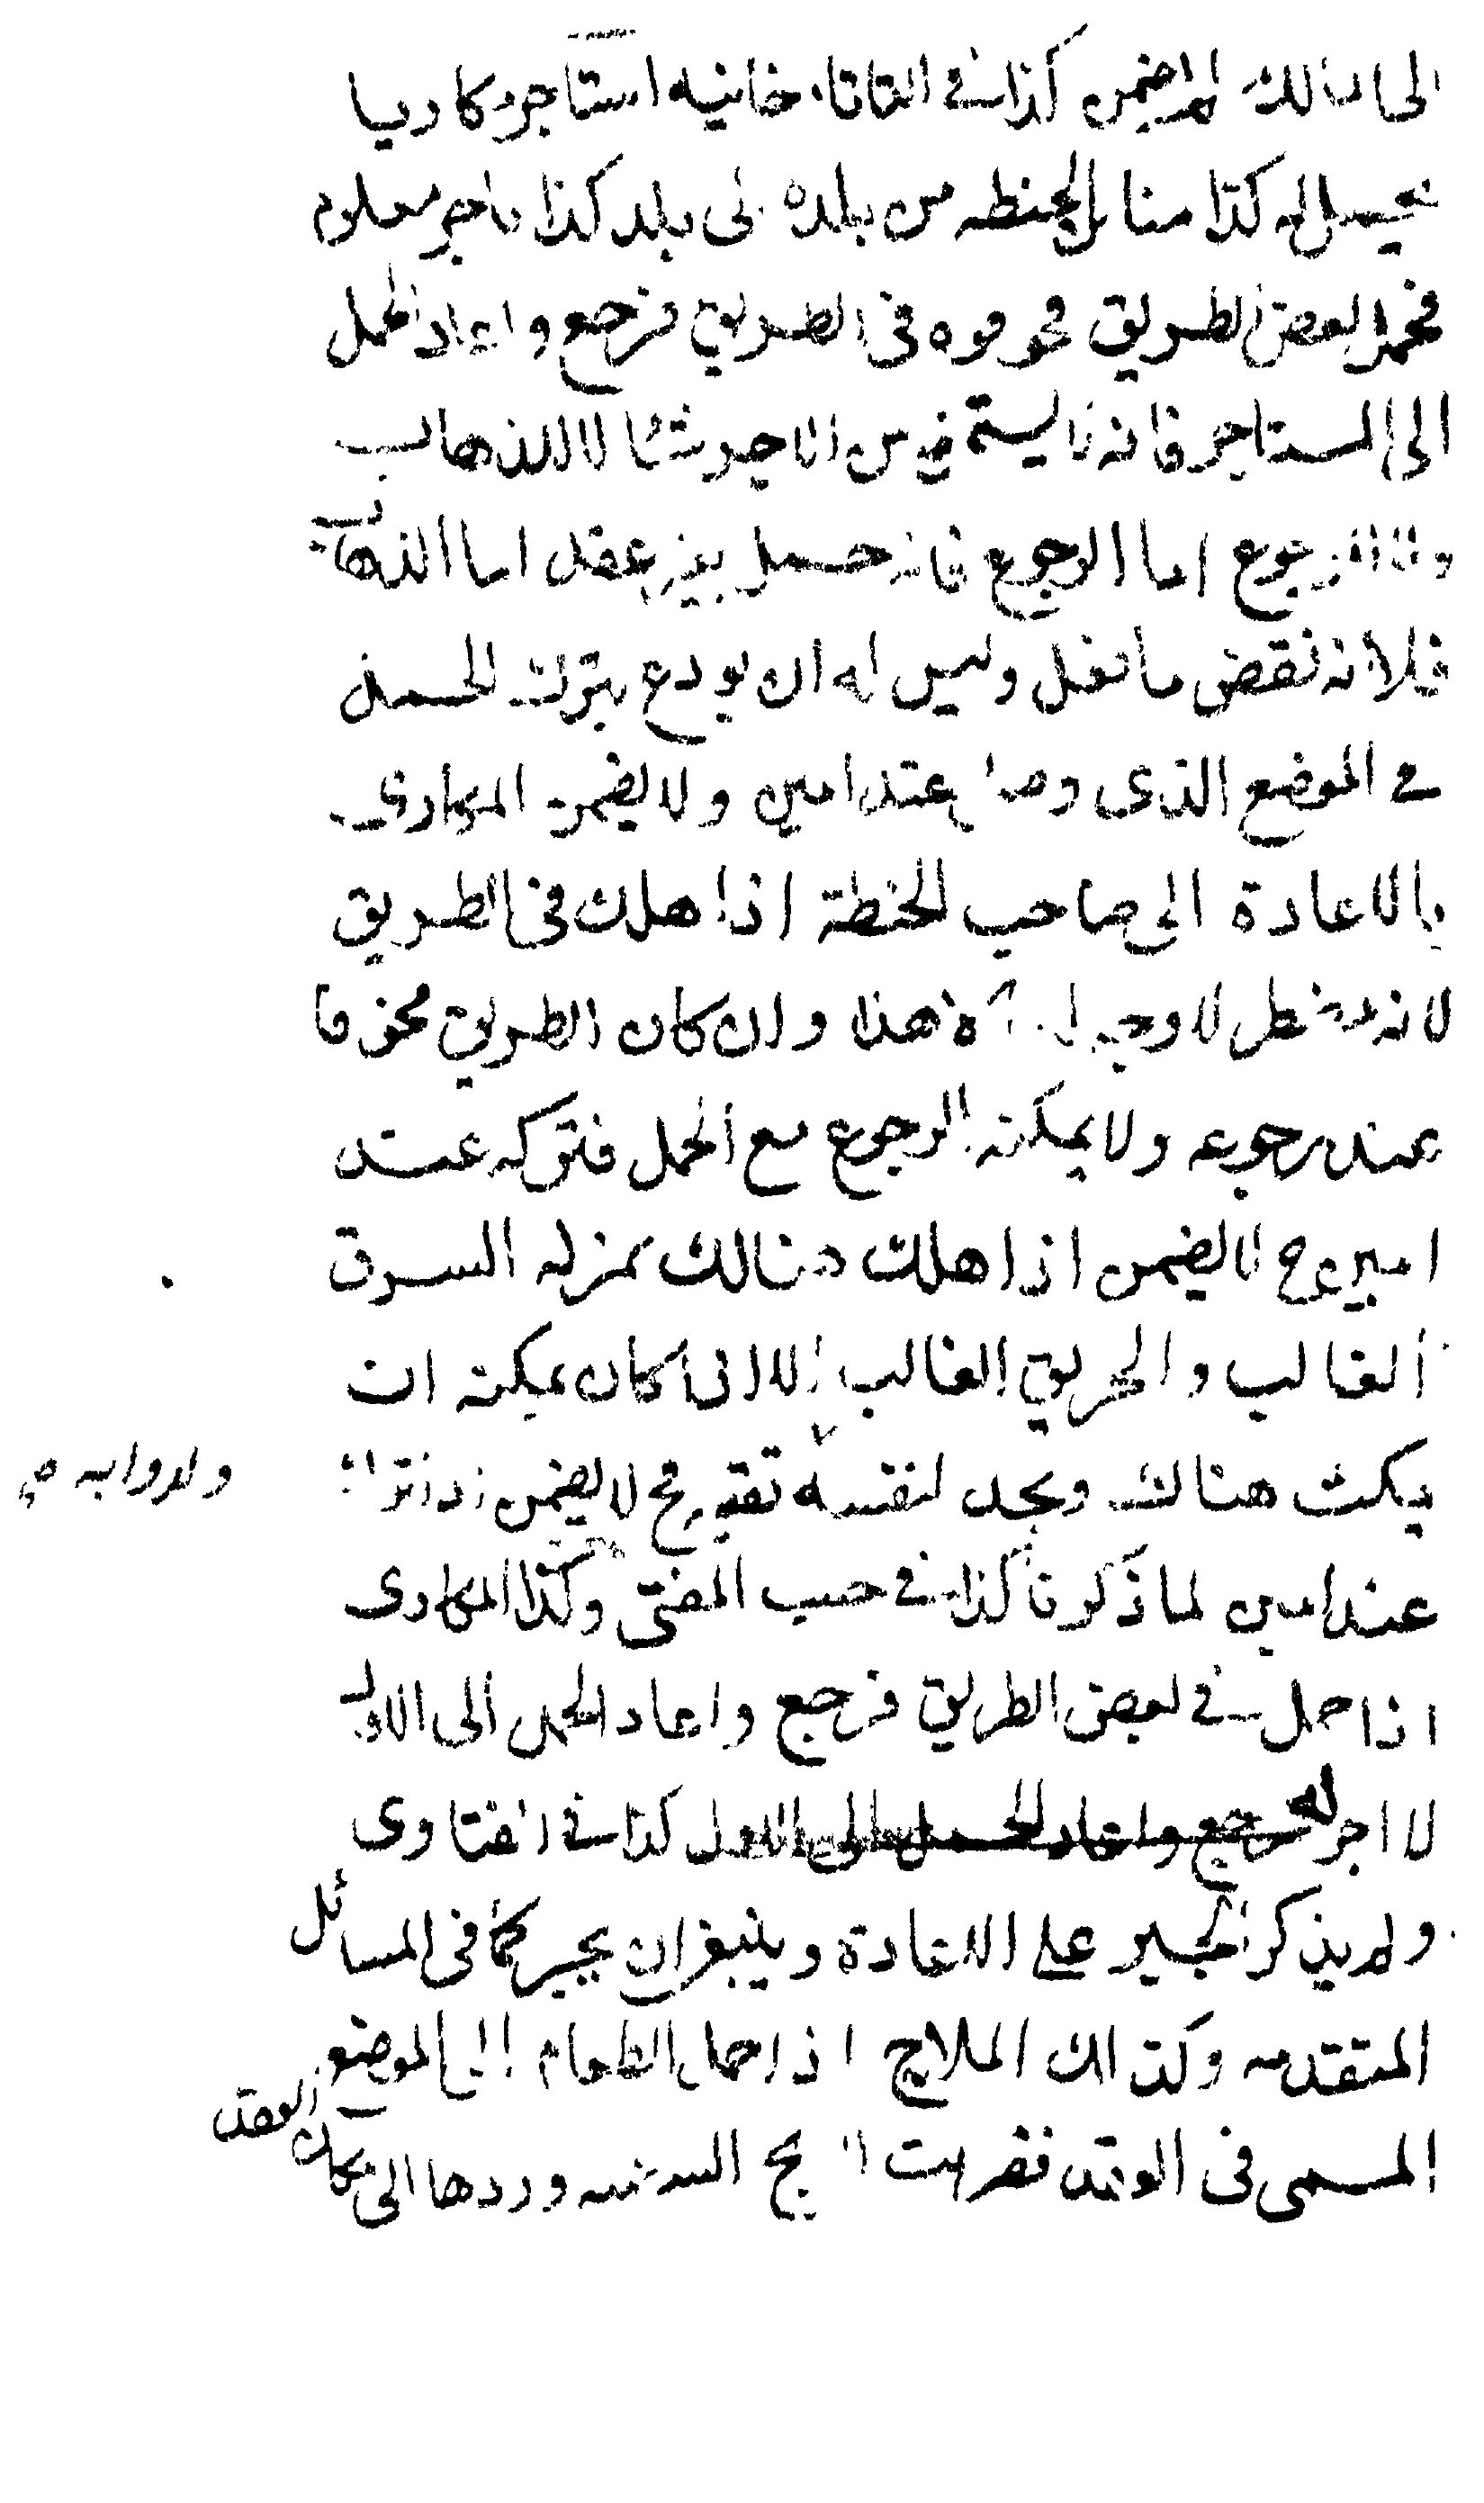 الى المالك لم يضمن كذا في التاتارخانيه استاجر مكاريا
ليحمل له كذا منا من الحنطه من بلده الى بلد كذا باجر معلوم
فحمل بعض الطريق فخوفوه في الطريق فرجع واعاد الحمل
الى المستاجر فانه لا يستحق من الاجر شئا لا للذهاب
ولا للرجوع اما الرجوع فانه حمل بغير عقد اما الذهاب
فلانه نقض ما فعل وليس له ان يودع بترك الحمل
في الموضع الذي وصل عند امين ولا يضمن المكاري
بالاعادة الى صاحب الحنطة اذا هلك في الطريق
لانه لا وجه هذا وان كان الطريق مخوفا
عند رجوعه ولا يمكنه الرجوع مع الحمل فتركه عند
امين وح لا يضمن اذا هلك هنالك بمنزله السرق
الغالب والحريق الغالب الا اذا كان يمكنه ان
يمكث هناك ويجد لنفسه تقيه فح لا يضمن
ولدوابه صح
عند امين لما ذكرنا كذا في حسب المفتى وكذا المكاري
اذا حمل في بعض الطريق فرجع واعاد الحمل الى الاول
لا اجر له فرجع واعاد الحمل الى الاول كذا في الفتاوى
ولم يذكر الجبر على الاعادة وينبغي ان يجبر كما في المسائل
المتقدمه وكذالك الملاح اذا حمل الطعام الى الموضع
المسمى في العقد فضربت الريح السفينه وردها الى مكان العقد